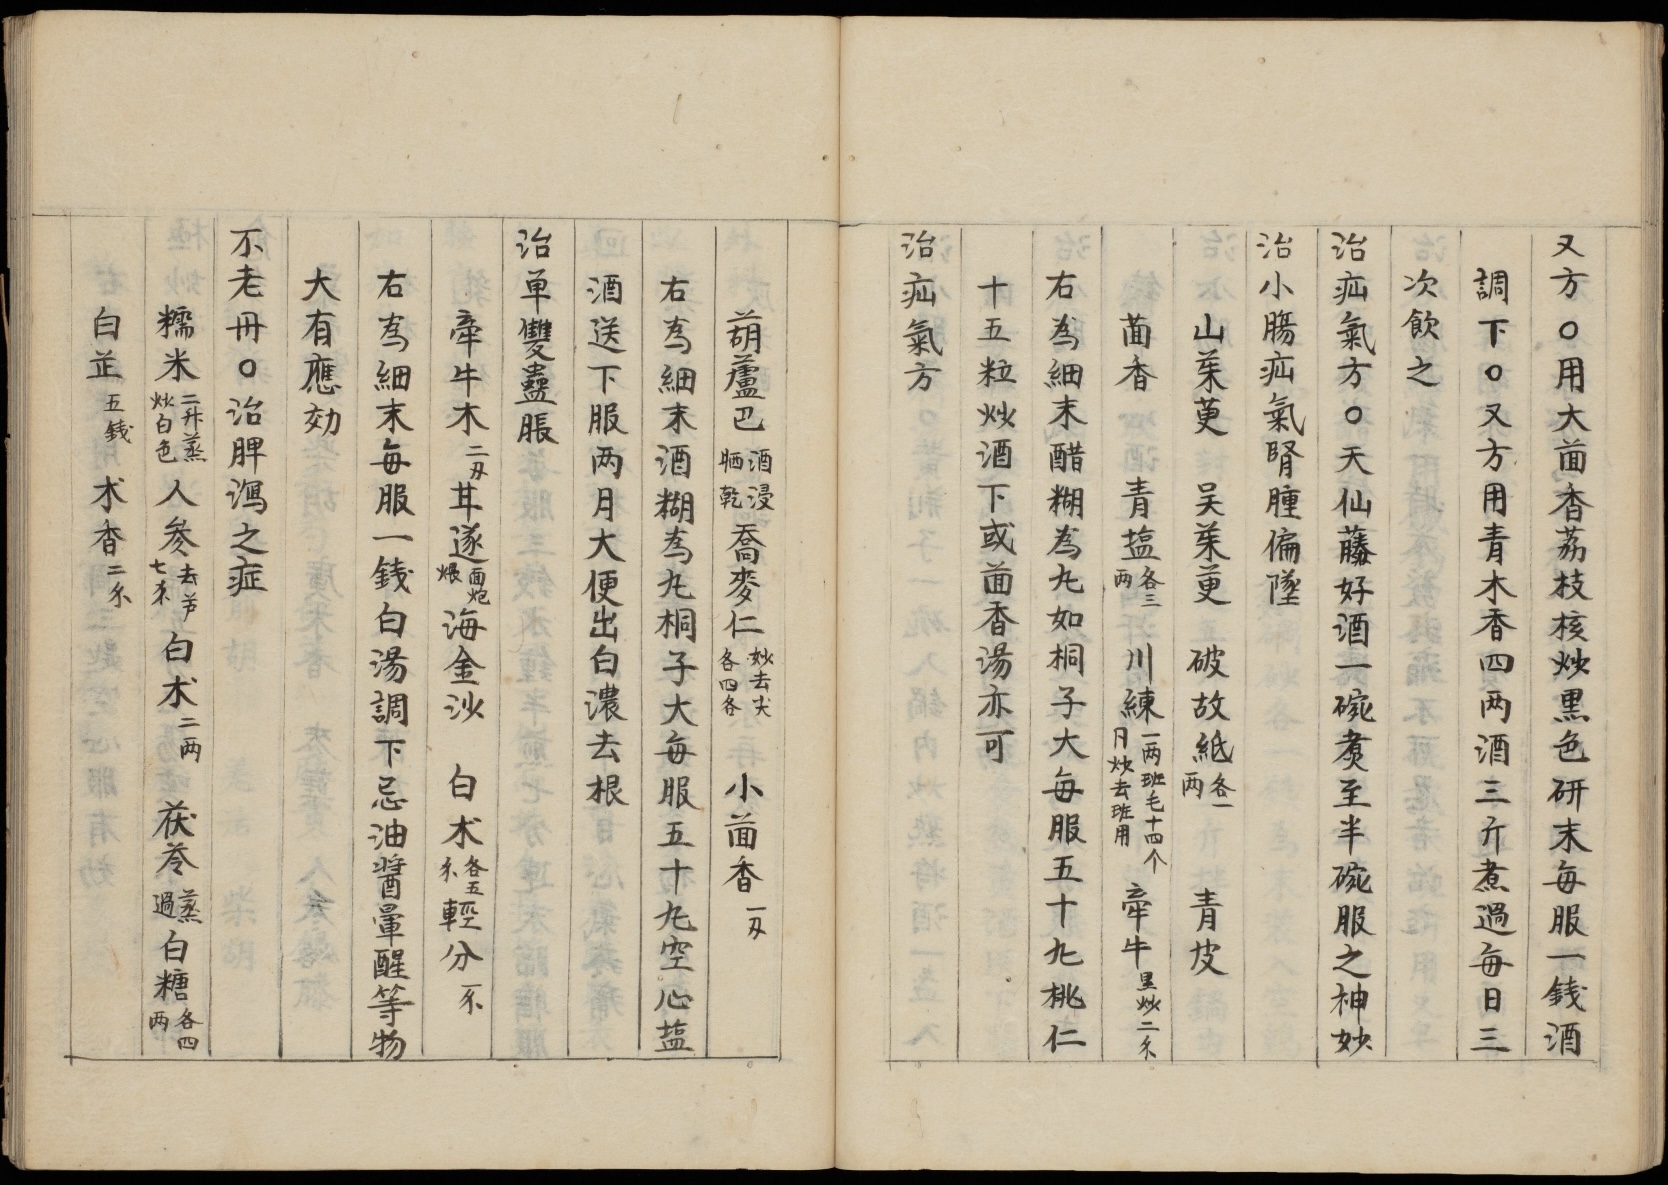 又方〇用大茴香荔枝核炒黒色研末每服一錢酒
調下〇又方用青木香四両酒三斤煮過每日三
次飲之
治疝氣方〇天仙藤好酒一碗煑至半碗服之神妙
治小腸疝氣腎腫偏墜
山茱萸 吴茱萸 破故紙各一両 青皮
茴香 青塩各三両 川練一両班毛十四个月炒去班用 牵牛黒炒二不
右為細末醋糊為九如桐子大每服五十九桃仁
十五粒炒酒下或茴香湯亦可
治疝氣方
葫蘆巴酒浸晒乾 喬麥仁炒去尖各四各 小茴香一刄
右為細末酒糊為九桐子大每服五十九空心塩
酒送下服两月大便出白濃去根
治单雙蠱脹
牵牛木二刄 耳遂面炮煨 海金沙 白术各五不 輕分一不
右為細末每服一錢白湯調下忌油醤暈醒等物
大有應効
不老冊〇治脾瀉之症
糯米二升蒸炒白色 人參去芦七不 白术二両 茯苓蒸過 白糖各四両
白芷五錢 木香二不